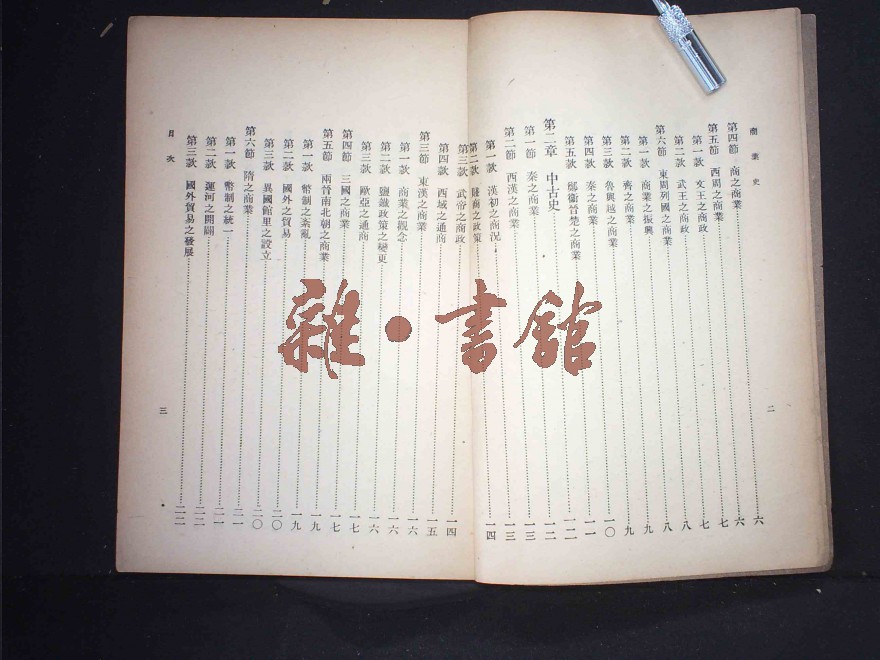 商業史
第四節 商之商業 六
第五節 西周之商業 六
第一款 文王之商政 七
第二款 武王之商政 七
第六節 東周列國之商業 八
第一款 商業之振興 八
第二款 齊之商業 九
第三款 魯與越之商業 九
第四款 秦之商業 一〇
第五款 鄭衛晉楚之商業 一一
第二章 中古史 一二
第一節 秦之商業 一二
第二節 西漢之商業 一三
第一款 漢初之商況 一三
第二款 賤商之政策 一四
二
第三款 武帝之商政 一四
第四款 西域之通商 一五
第三節 東漢之商業 一六
第一款 商業之觀念 一六
第二款 鹽鐵政策之變更 一六
第三款 歐亞之通商 一七
第四節 三國之商業 一七
第五節 兩晉南北朝之商業 一九
第一款 幣制之紊亂 一九
第二款 國外之貿易 二〇
第三款 異國館里之設立 二〇
第六節 隋之商業 二一
第一款 幣制之統一 二一
第二款 運河之開闢 二二
第三款 國外貿易之發展 二二
目次
三
雜·書館